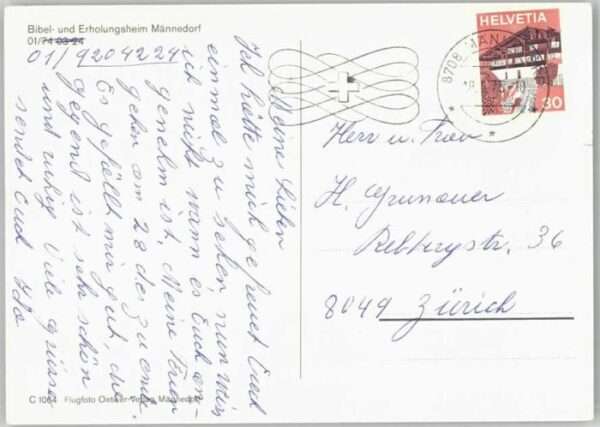 Bibel- und Erholungsheim Männedorf
01/74 03 24
01/9204224
Meine Lieben
Ich hätte mich gefreut Euch
einmal zu sehen nun weis
ich nicht wann es Euch an-
genehm ist. Meine Ferien
gehen am 28 des zu ende.
Es gefällt mir gut, die
gegend ist sehr schön
und ruhig Viele grüsse
sendet Euch Ida
C 1064 Flugfoto Oetiker-Verlag Männedorf
HELVETIA
30
8708 MÄNN
Herr u. Frau
H. Grunauer
Rebbergstr. 36
8049 Zürich